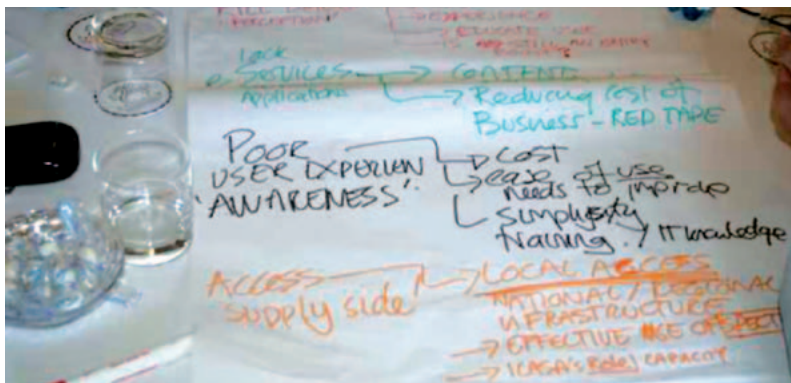 EXPERIENCE
EDUCATE USE
Lack
e-Services
Applications
CONTENT
Reducing cost of
Business - RED TAPE
POOR
USER EXPERIEN
'AWARENESS'
COST
ease of use
needs to improve
simplexity
training / IT knowledge
ACCESS
supply side
LOCAL ACCESS
NATIONAL / REGIONAL
INFRASTRUCTURE
EFFECTIVE USE OF SPECT
ICASA's Role / CAPACITY